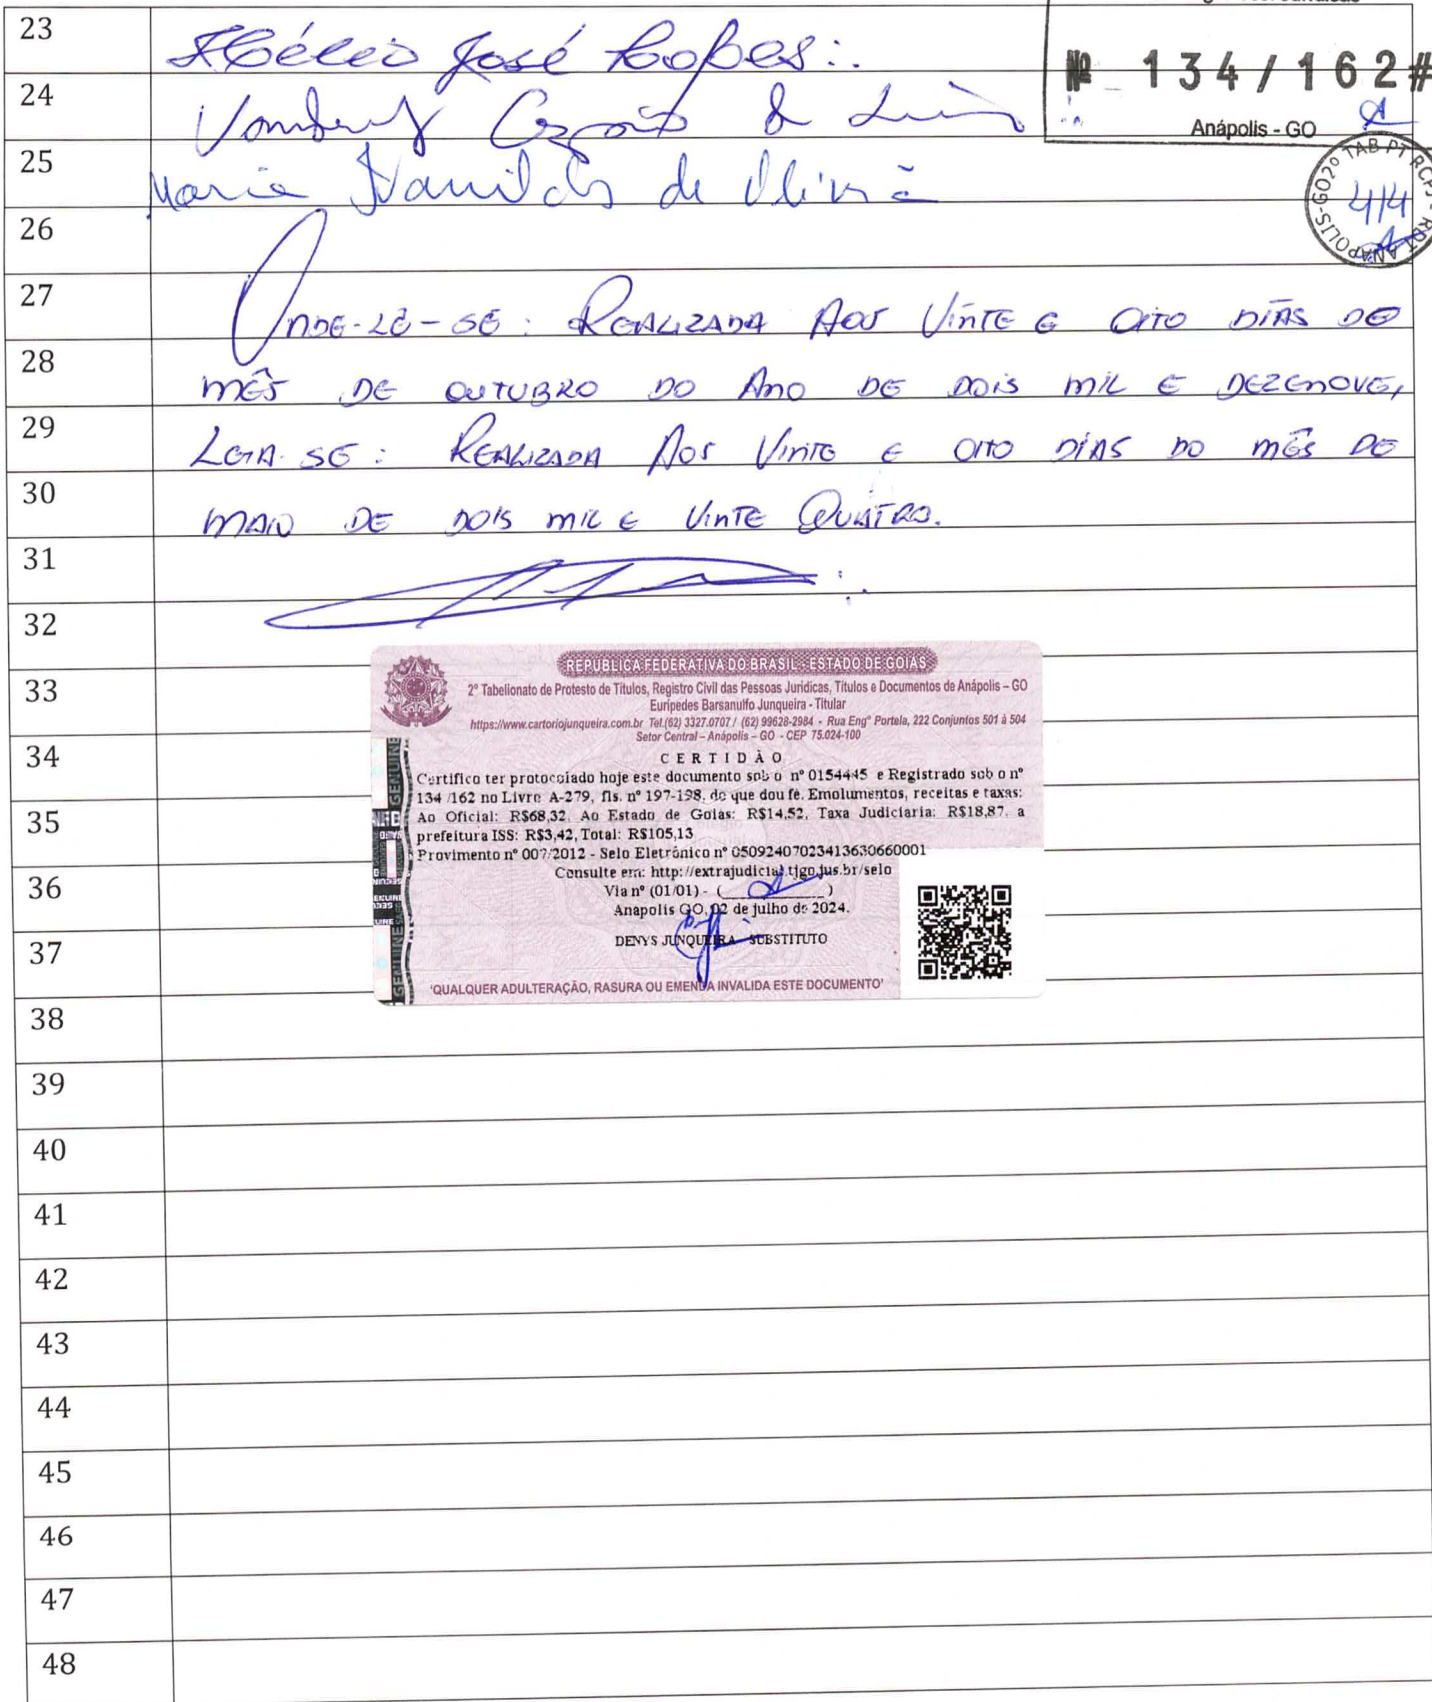 Nº 134/162#
Anápolis - GO
23 Hélcio José Lopes:.
24
25 Maria Ivanilds de Oliveira
ANÁPOLIS-GO 2º TAB PT RCPJ - RDT
4/4
26
27 ONDE-LÊ-SE: REALIZADA AOS VINTE E OITO DIAS DO
28 MÊS DE OUTUBRO DO ANO DE DOIS MIL E DEZENOVE,
29 LEIA-SE: REALIZADA AOS VINTE E OITO DIAS DO MÊS DE
30 MAIO DE DOIS MIL E VINTE QUATRO.
31
32
33
34
35
36
37
REPÚBLICA FEDERATIVA DO BRASIL - ESTADO DE GOIÁS
2º Tabelionato de Protesto de Títulos, Registro Civil das Pessoas Jurídicas, Títulos e Documentos de Anápolis – GO
Eurípedes Barsanulfo Junqueira - Titular
https://www.cartoriojunqueira.com.br Tel.(62) 3327.0707 / (62) 99628-2984 - Rua Engº Portela, 222 Conjuntos 501 à 504
Setor Central – Anápolis – GO - CEP 75.024-100
CERTIDÃO
Certifico ter protocolado hoje este documento sob o nº 0154445 e Registrado sob o nº
134 /162 no Livro A-279, fls. nº 197-198, do que dou fé. Emolumentos, receitas e taxas:
Ao Oficial: R$68,32, Ao Estado de Goias: R$14,52, Taxa Judiciaria: R$18,87, a
prefeitura ISS: R$3,42, Total: R$105,13
Provimento nº 007/2012 - Selo Eletrônico nº 05092407023413630660001
Consulte em: http://extrajudicial.tjgo.jus.br/selo
Via nº (01/01) - ( )
Anapolis GO, 02 de julho de 2024.
DENYS JUNQUEIRA - SUBSTITUTO
'QUALQUER ADULTERAÇÃO, RASURA OU EMENDA INVALIDA ESTE DOCUMENTO'
GENUINE
38
39
40
41
42
43
44
45
46
47
48